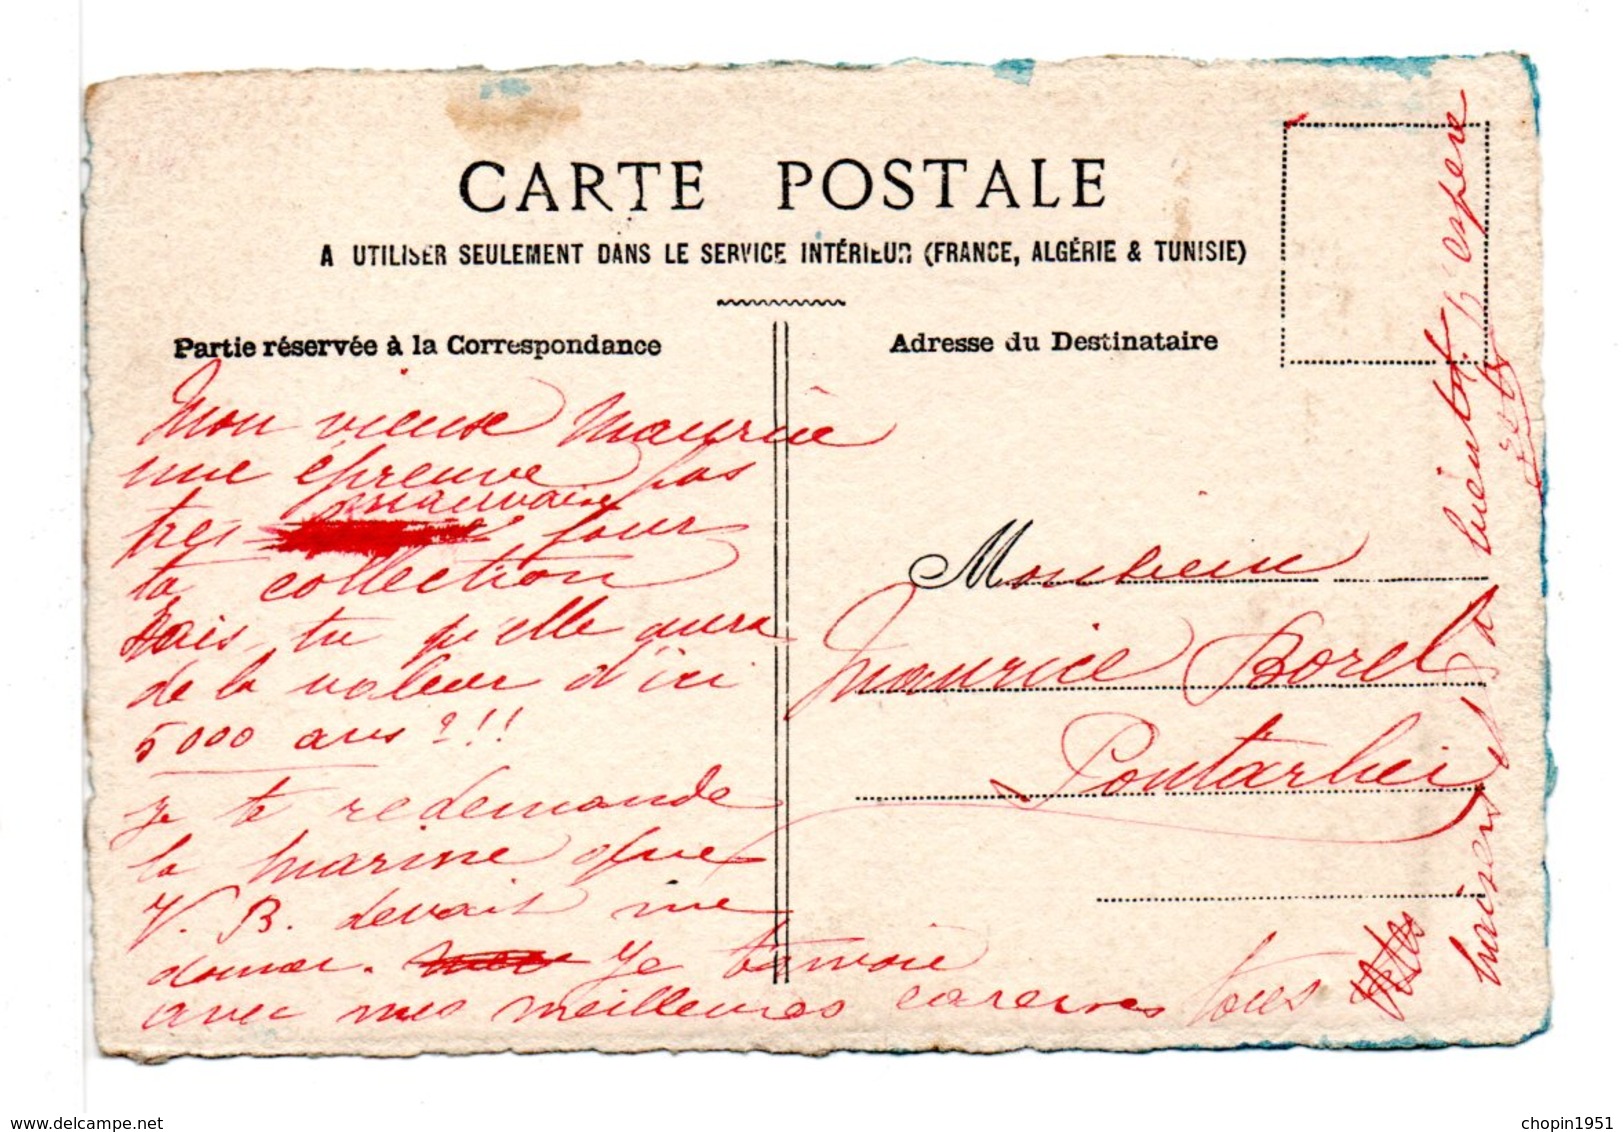 CARTE POSTALE
A UTILISER SEULEMENT DANS LE SERVICE INTÉRIEUR (FRANCE, ALGÉRIE & TUNISIE)
Partie réservée à la Correspondance
Mon vieux Maurice
une épreuve pas
mauvaise
tres pour
ta collection
Sais tu qu'elle aura
de la valeur d'ici
5000 ans ?!!
Je te redemande
la marine que
V. B. devait me
donner. Je t'envoie
avec mes meilleures caresses tous
mes baisers et à bientôt j'espère
Adresse du Destinataire
Monsieur
Maurice Borel
Pontarlier
delcampe.net
chopin1951